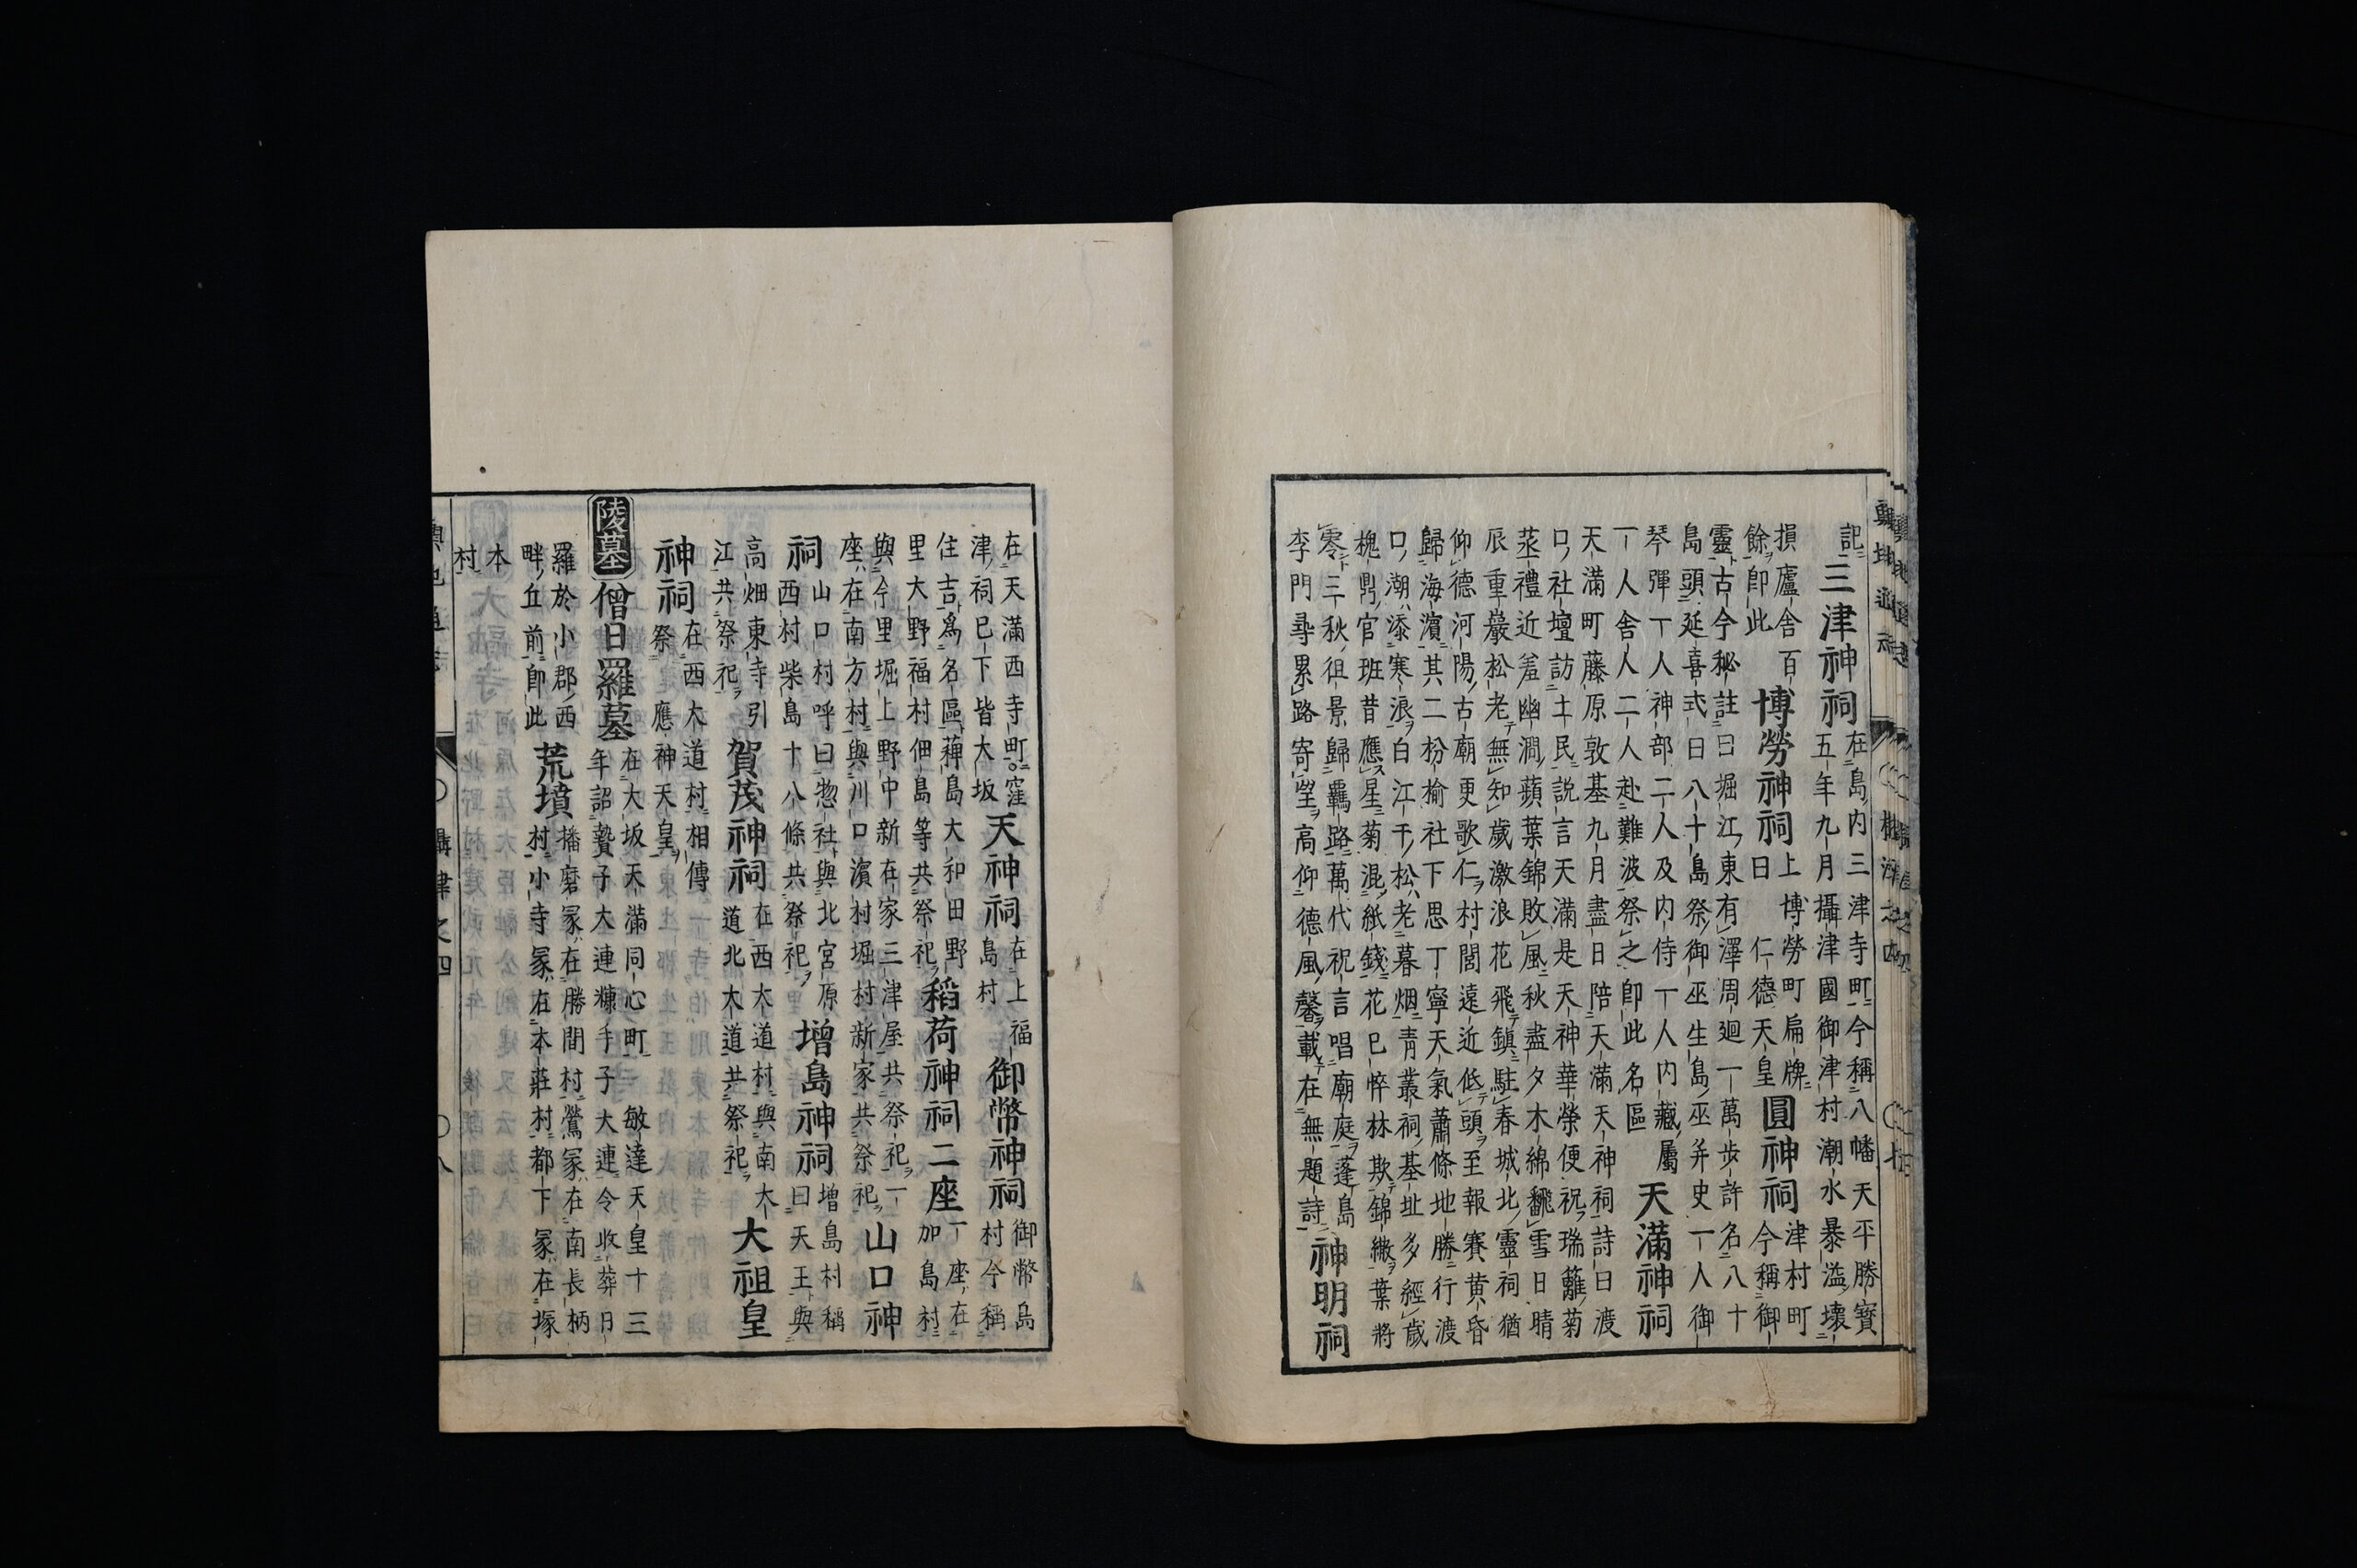 記
三津神祠
在島内三津寺町今稱八幡天平勝寶
五年九月攝津國御津村潮水暴溢壞
損廬舍百
餘即此
博勞神祠
上博勞町扁牌
曰仁德天皇
圓神祠
津村町
今稱御
靈古今秘註曰堀江東有澤周廻一萬步許名八十
島頭延喜式曰八十島祭御巫生島巫并史一人御
琴彈一人神部二人及內侍一人內藏屬
一人舍人二人赴難波祭之即此名區
天滿神祠
天滿町藤原敦基九月盡日陪天滿天神祠詩曰渡
口社壇訪土民說言天滿是天神華榮便祝瑞籬菊
蒸禮近羞幽澗蘋葉錦敗風秋盡夕木綿飜雪日晴
辰重巖松老無知歲激浪花飛鎮駐春城北靈祠猶
仰德河陽古廟更歌仁村閭遠近低頭至報賽黃昏
歸海濱其二枌榆社下思丁寧天氣蕭條地勝行渡
口潮添寒浪白江干松老暮烟青叢祠基址多經歲
槐鼎官班昔應星菊混紙錢花已悴林欺錦繖葉將
零三秋徂景歸羈路萬代祝言唱廟庭蓬島
李門尋累路寄望高仰德風馨載在無題詩
神明祠
在天滿西寺町窪
津祠已下皆大坂
天神祠
在上福
島村
御幣神祠
御幣島
村今稱
住吉爲名區薭島大和田野
里大野福村佃島等共祭祀
稻荷神祠二座
一座在
加島村
與今里堀上野中新在家三津屋共祭祀一
座在南方村與川口濱村堀村新家共祭祀
山口神
祠
山口村呼曰惣社與北宮原
西村柴島十八條共祭祀
增島神祠
增島村稱
曰天王與
高畑東寺引
江共祭祀
賀茂神祠
在西大道村與南大
道北大道共祭祀
大祖皇
神祠
在西大道村相傳
祭應神天皇
陵墓
僧日羅墓
在大坂天滿同心町敏達天皇十三
年詔贄子大連糠手子大連令收葬日
羅於小郡西
畔丘前即此
荒墳
播磨冢在勝間村鶯冢在南長柄
村小寺冢在本莊村都下冢在塚
本
村